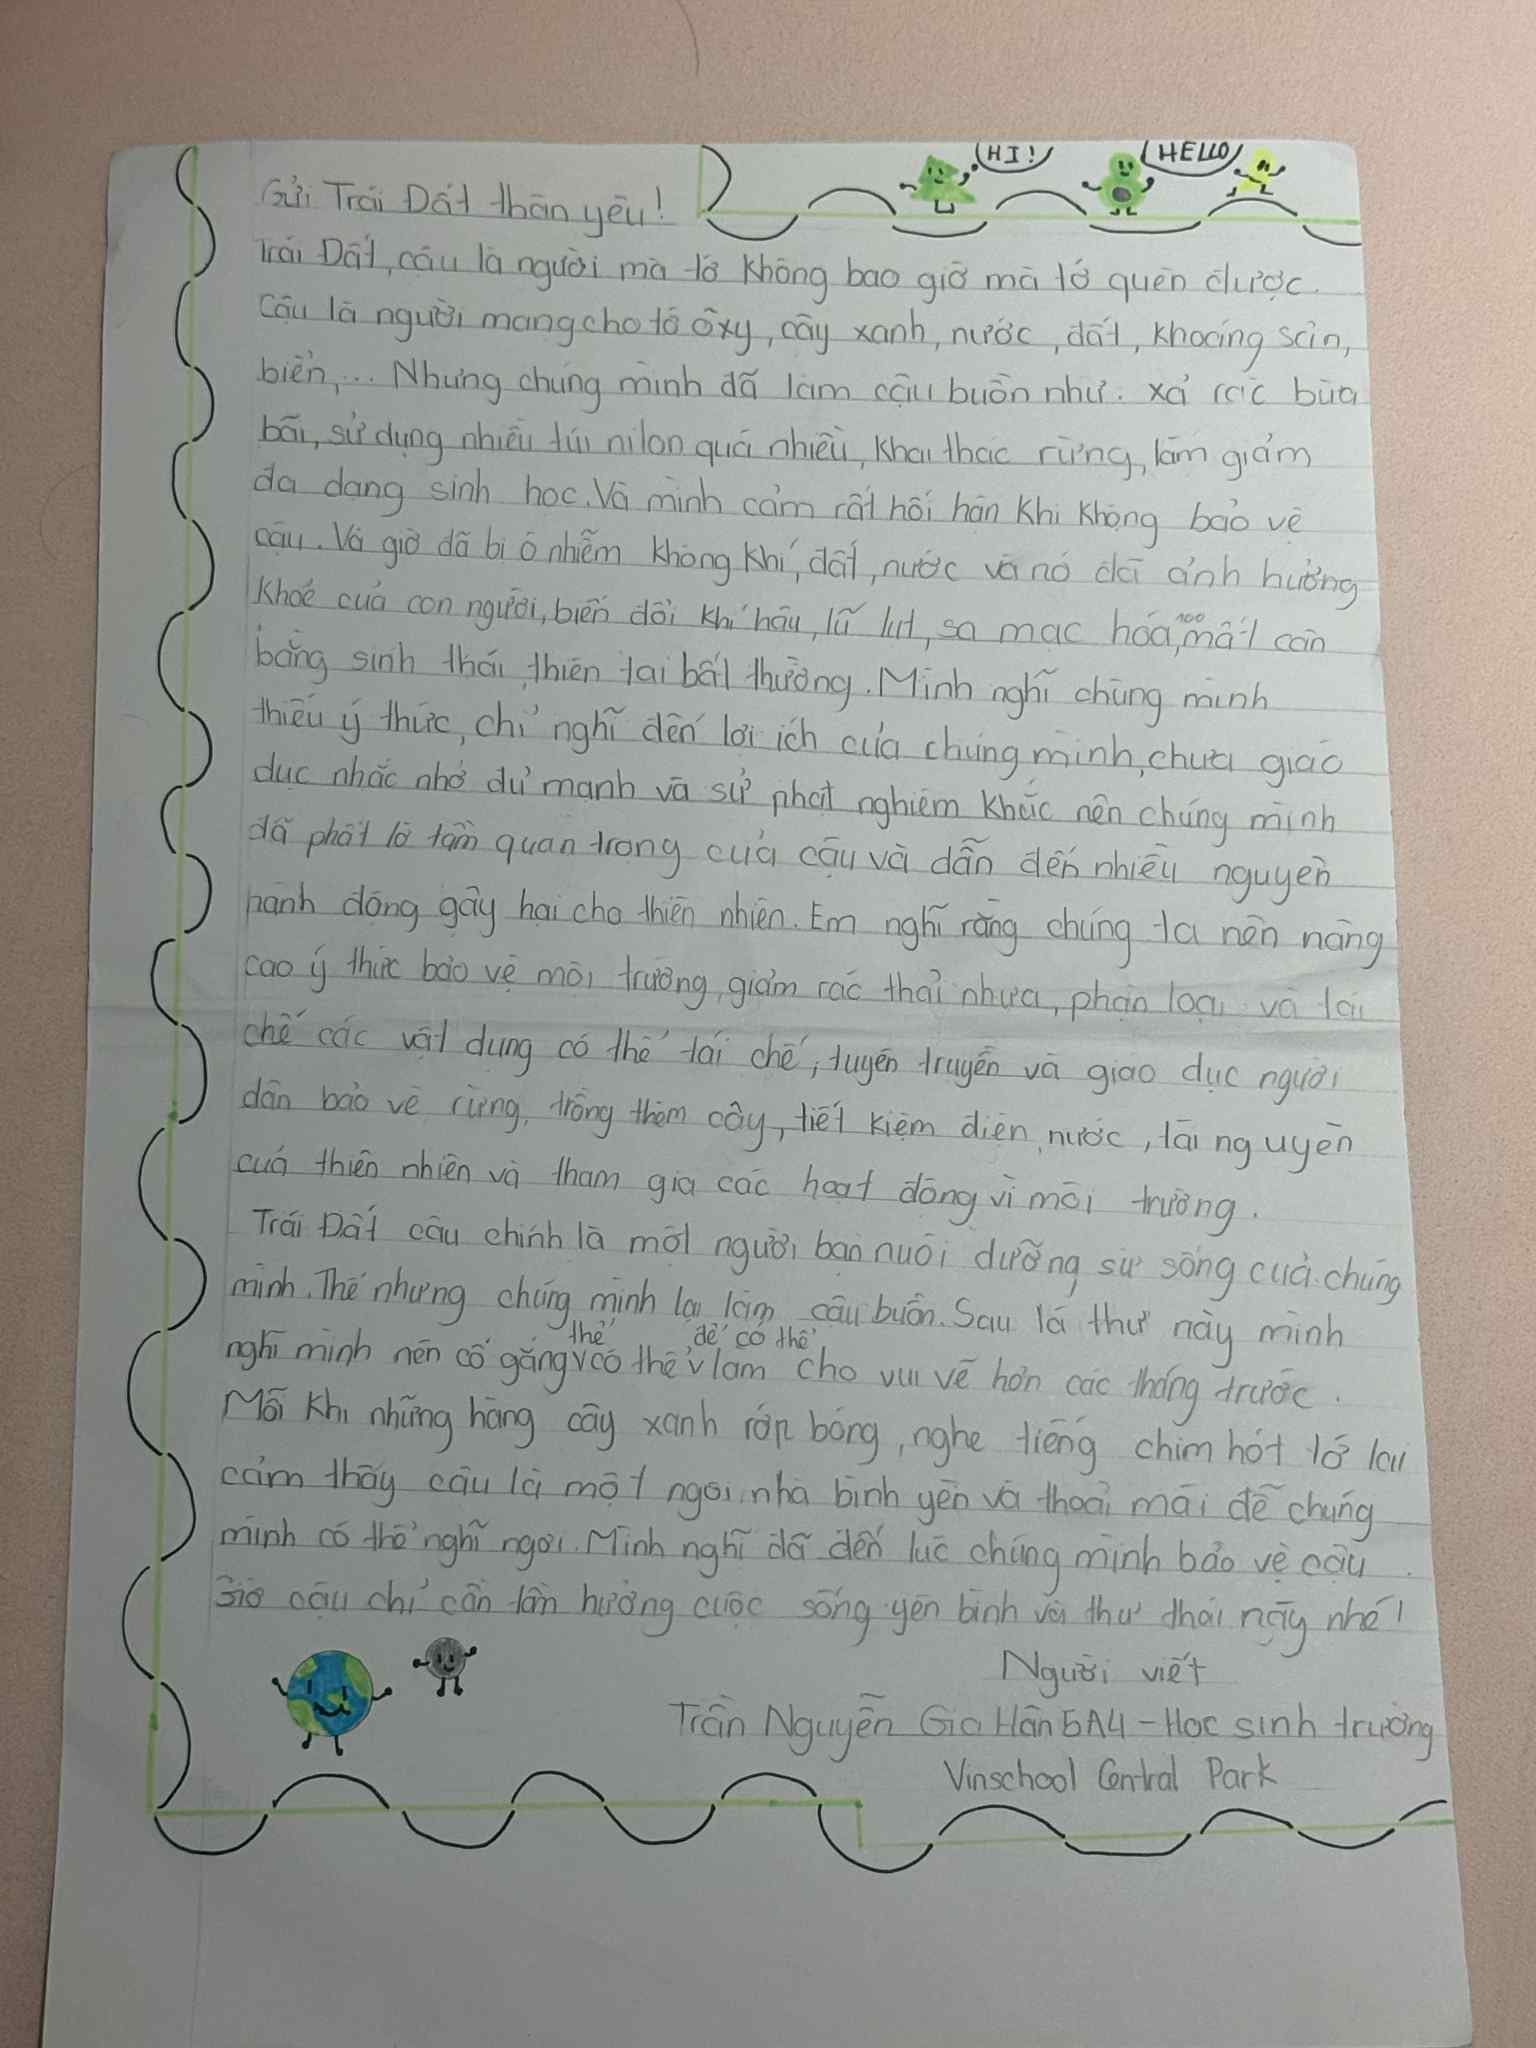 HI!
HELLO
Gửi Trái Đất thân yêu!
Trái Đất, cậu là người mà tớ không bao giờ mà tớ quên được.
Cậu là người mang cho tớ ôxy, cây xanh, nước, đất, khoáng sản,
biển,... Nhưng chúng mình đã làm cậu buồn như: xả rác bừa
bãi, sử dụng nhiều túi nilon quá nhiều, khai thác rừng, làm giảm
đa dạng sinh học. Và mình cảm rất hối hận khi không bảo vệ
cậu. Và giờ đã bị ô nhiễm không khí, đất, nước và nó đã ảnh hưởng
khoẻ của con người, biến đổi khí hậu, lũ lụt, sa mạc hóa, mất cân
bằng sinh thái, thiên tai bất thường. Mình nghĩ chúng mình
thiếu ý thức, chỉ nghĩ đến lợi ích của chúng mình, chưa giáo
dục nhắc nhở đủ mạnh và sử phạt nghiêm khắc nên chúng mình
đã phớt lờ tầm quan trọng của cậu và dẫn đến nhiều nguyên
hành động gây hại cho thiên nhiên. Em nghĩ rằng chúng ta nên nâng
cao ý thức bảo vệ môi trường, giảm rác thải nhựa, phân loại và tái
chế các vật dụng có thể tái chế, tuyên truyền và giao dục người
dân bảo vệ rừng, trồng thêm cây, tiết kiệm điện, nước, tài nguyên
của thiên nhiên và tham gia các hoạt động vì môi trường.
Trái Đất cậu chính là một người bạn nuôi dưỡng sự sống của chúng
mình. Thế nhưng chúng mình lại làm cậu buồn. Sau lá thư này mình
nghĩ mình nên cố gắng thể có thể để có thể làm cho vui vẻ hơn các tháng trước.
Mỗi khi những hàng cây xanh rợp bóng, nghe tiếng chim hót tớ lại
cảm thấy cậu là một ngôi nhà bình yên và thoải mái để chúng
mình có thể nghĩ ngơi. Mình nghĩ đã đến lúc chúng mình bảo vệ cậu.
Giờ cậu chỉ cần tận hưởng cuộc sống yên bình và thư thái này nhé!
Người viết
Trần Nguyễn Gia Hân 5A4 - Học sinh trường
Vinschool Central Park